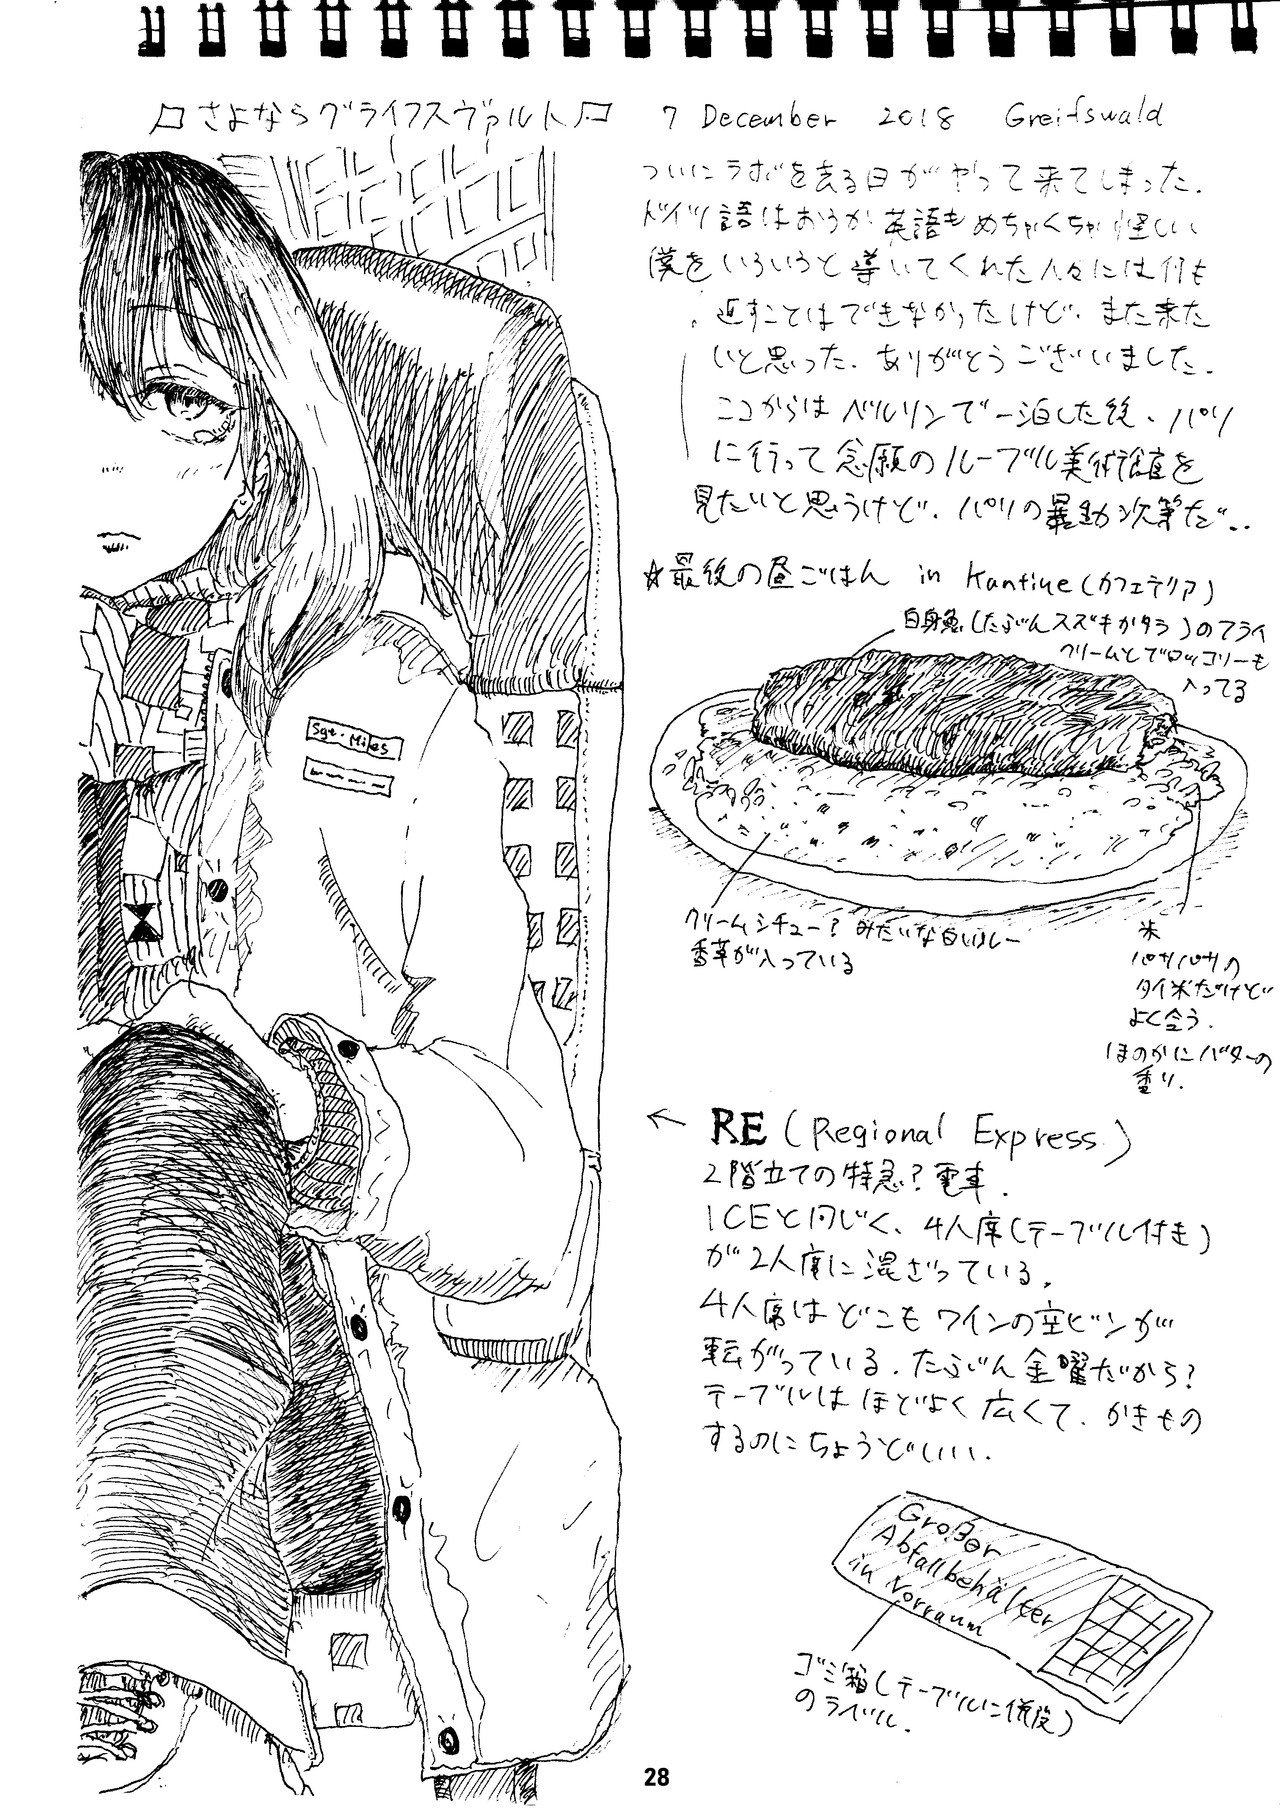 さよならグライフスヴァルト
7 December 2018 Greifswald
ついにラボを去る日がやって来てしまった.
ドイツ語はおろか英語もめちゃくちゃ怪しい
僕をいろいろと導いてくれた人々には何も
返すことはできなかったけど、また来た
いと思った. ありがとうございました.
ここからはベルリンで一泊した後、パリ
に行って念願のルーブル美術館を
見たいと思うけど、パリの暴動次第だ..
☆最後の昼ごはん in Kantine (カフェテリア)
白身魚(たぶんスズキかタラ)のフライ
クリームとブロッコリーも
入ってる
Sgt. Miles
クリームシチュー? みたいな白いカレー
香草が入っている
米
パサパサの
タイ米だけど
よく合う.
ほのかにバターの
香り.
← RE (Regional Express)
2階立ての特急? 電車.
ICEと同じく、4人席(テーブル付き)
が2人席に混ざっている.
4人席はどこもワインの空ビンが
転がっている. たぶん金曜だから?
テーブルはほどよく広くて、かきもの
するのにちょうどいい.
Großer
Abfallbehälter
in Vorraum
ゴミ箱(テーブルに併設)
のラベル.
28